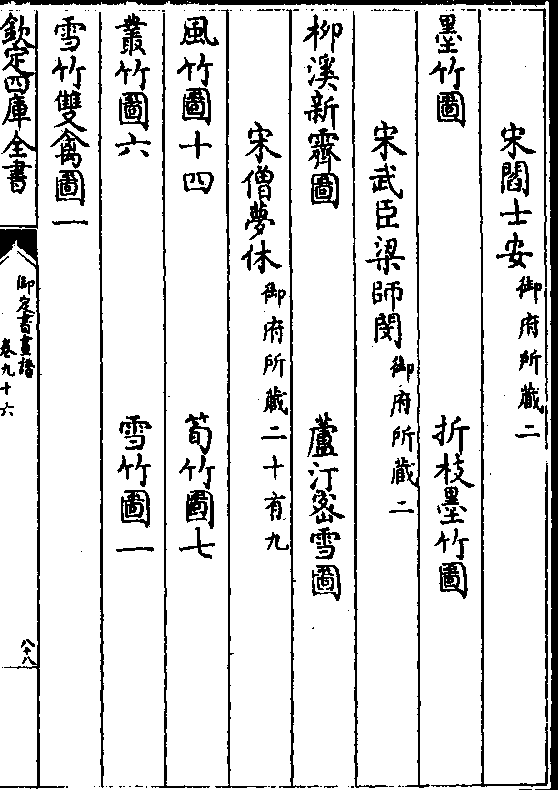 宋閻士安御府所藏二
墨竹圖 折枝墨竹圖
宋武臣梁師閔御府所藏二
柳溪新霽圖 蘆汀密雪圖
宋僧夢休御府所藏二十有九
風竹圖十四 荀竹圖七
叢竹圖六 雪竹圖一
雪竹雙禽圖一
欽定四庫全書
御定書畫譜
卷九十六
八十八